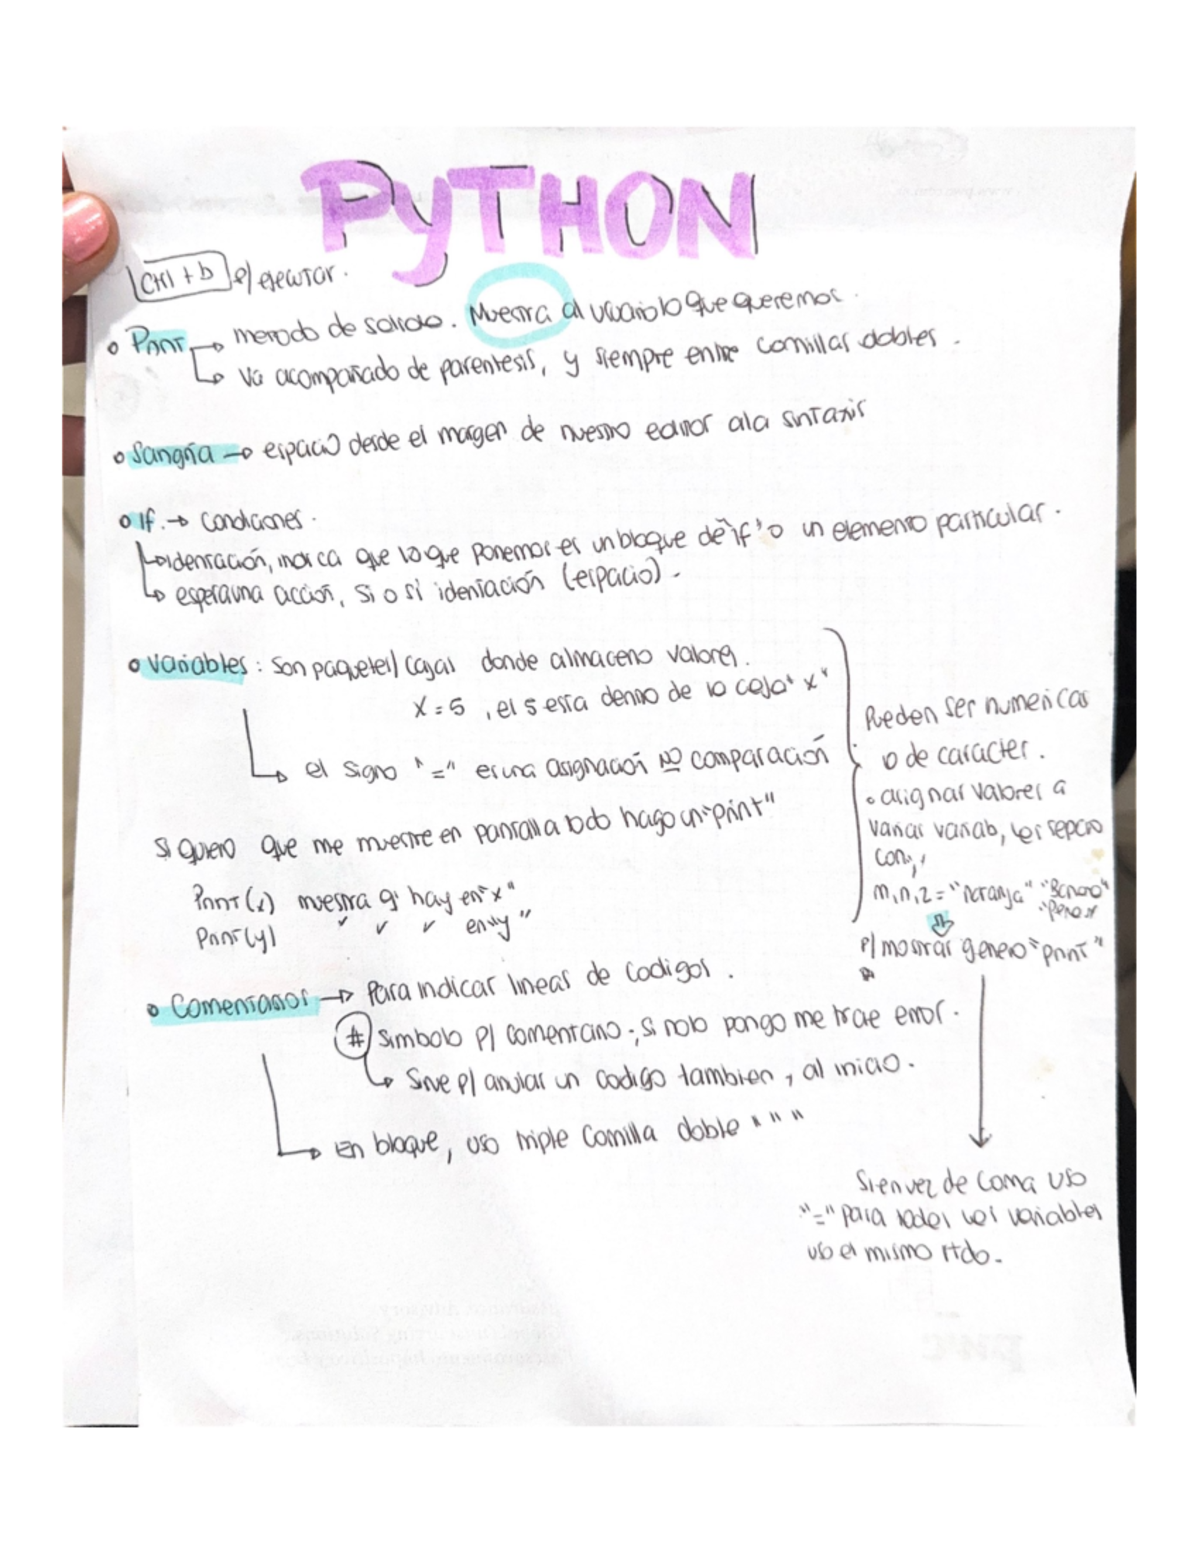 PYTHON
Ctrl + b p/ ejecutar.
Print → metodo de salida. Muestra al usuario lo que queremos.
↳ Va acompañado de parentesis, y siempre entre comillas dobles.
Sangría → espacio desde el margen de nuestro editor a la sintaxis
If. → Condiciones.
↳ identación, indica que lo que ponemos es un bloque de "if" o un elemento particular.
↳ espera una acción, si o sí identación (espacio).
Variables: Son paquetes/cajas donde almaceno valores.
X = 5, el 5 esta dentro de la caja "x"
↳ el signo "=" es una asignación NO comparación
Si quiero que me muestre en pantalla todo hago un "print"
Print(x) muestra q' hay en "x"
Print(y) ✓ ✓ ✓ en "y"
Pueden ser numericas
o de caracter.
• asignar valores a
varias variab, les separo
con ,
m,n,z = "naranja" "Banano"
"Pera"
⇩
p/ mostrar genero "print"
Si en vez de coma uso
"=" para todas las variables
uso el mismo rtdo.
Comentarios → Para indicar lineas de codigos.
# Simbolo p/ comentario; si no lo pongo me trae error.
↳ Sirve p/ anular un codigo tambien, al inicio.
↳ En bloque, uso triple comilla doble " " "